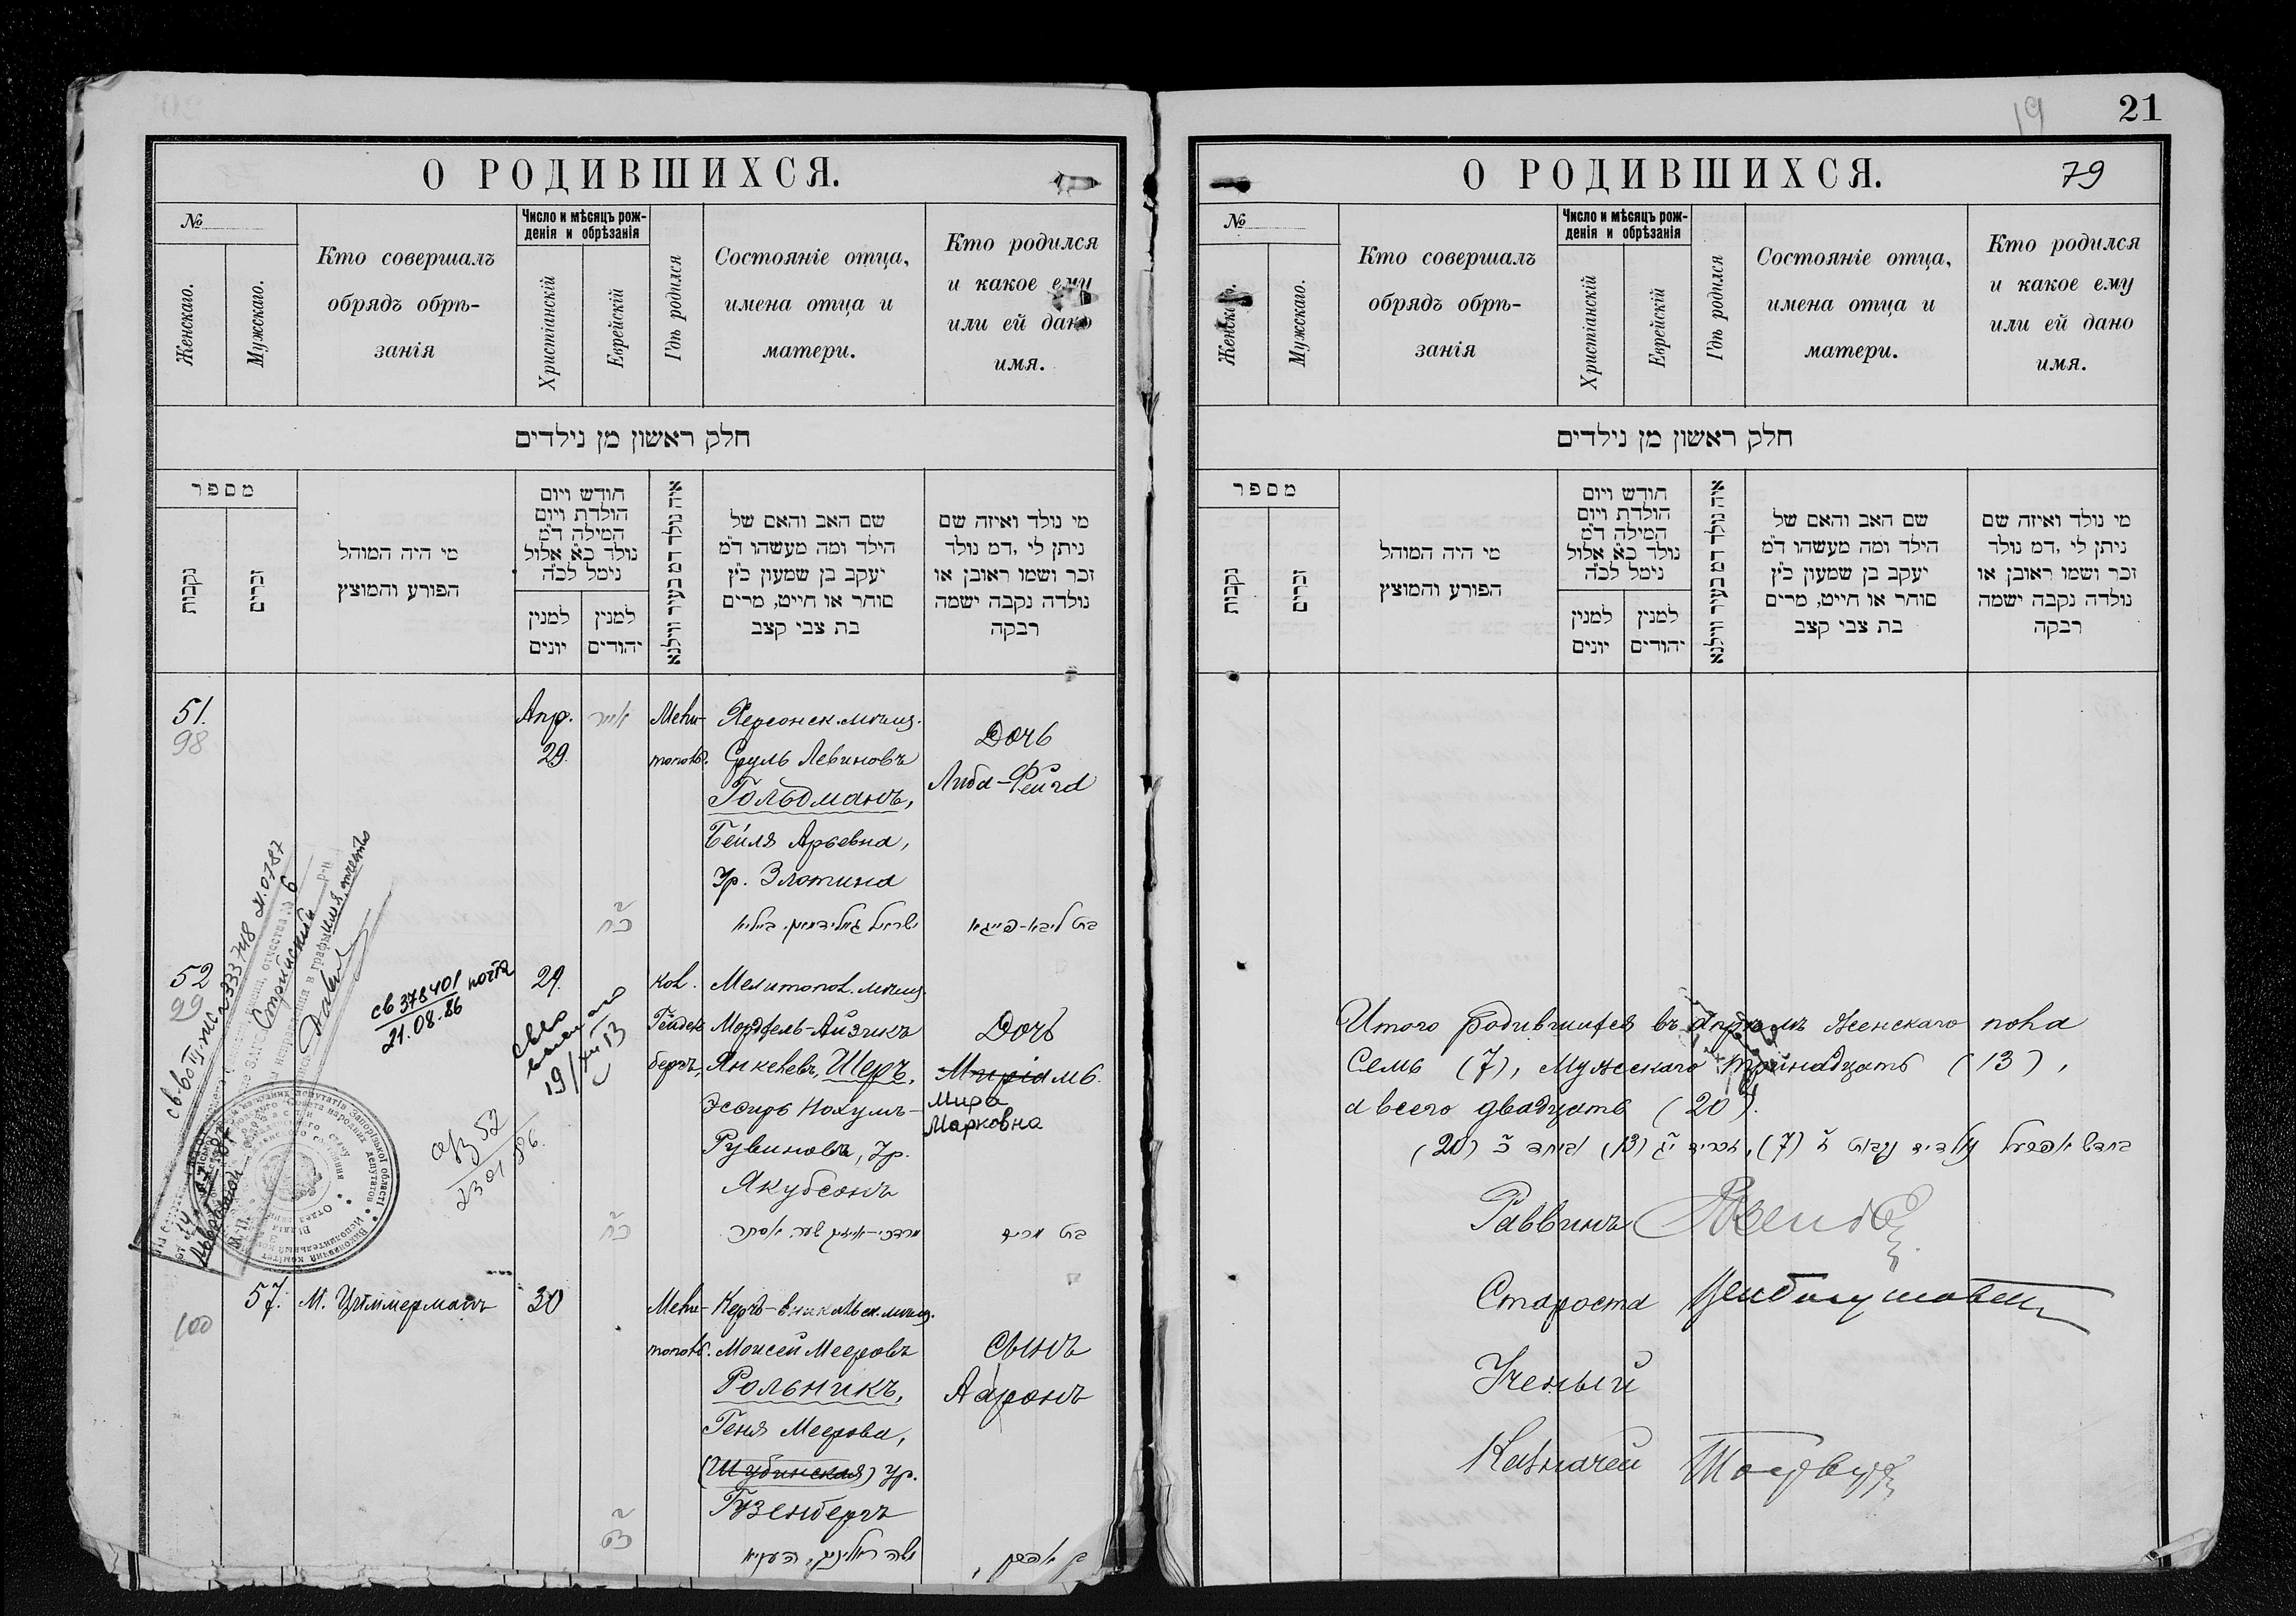 О РОДИВШИХСЯ.
№
Женскаго.
Мужскаго.
Кто совершалъ
обрядъ обрѣ-
занія
Число и мѣсяцъ рож-
денія и обрѣзанія
Христіанскій
Еврейскій
Гдѣ родился
Состояніе отца,
имена отца и
матери.
Кто родился
и какое ему
или ей дано
имя.
חלק ראשון מן נילדים
מספר
נקבות
זכרים
מי היה המוהל
הפורע והמוצץ
חודש ויום
הולדת ויום
המילה ד״מ
נולד כ״א אלול
נימל לכ״ה
למנין
יונים
למנין
יהודים
איה נולד דמ בעיר ווילנא
שם האב והאם של
הילד ומה מעשהו ד״מ
יעקב בן שמעון כ״ץ
סוחר או חייט, מרים
בת צבי קצב
מי נולד ואיזה שם
ניתן לי, דמ נולד
זכר ושמו ראובן או
נולדה נקבה ישמה
רבקה
51.
98
Апр.
29.
אייר
כ״ח
Мели-
топол.
Херсонск. мѣщ.
Сруль Левиновъ
Гольдманъ,
Бейля Арьевна,
ур. Злотина
Дочь
Либа-Фейга
בת ליבא-פייגא
52
99
29.
כ״ח
кол.
Гейдель
бергъ,
Мелитопол. мѣщ.
Мордхель-Айзикъ
Янкелевъ, Шеръ,
Эсфирь Нохумъ-
Рувинова, ур.
Якубсонъ
Дочь
Миріамъ.
Мира
Марковна
בת מרים
св 378401 почта
21.08.86
23.01.86.
57.
100
М. Циммерманъ
30
כ״ט
Мели-
топол.
Керчь-Еникальск. мѣщ.
Моисей Мееровъ
Рольникъ,
Геня Меерова,
(Шубинская) ур.
Гузенбергъ
Сынъ
Ааронъ
בן אהרן
21
19
О РОДИВШИХСЯ.
79
№
Женскаго.
Мужскаго.
Кто совершалъ
обрядъ обрѣ-
занія
Число и мѣсяцъ рож-
денія и обрѣзанія
Христіанскій
Еврейскій
Гдѣ родился
Состояніе отца,
имена отца и
матери.
Кто родился
и какое ему
или ей дано
имя.
חלק ראשון מן נילדים
מספר
נקבות
זכרים
מי היה המוהל
הפורע והמוצץ
חודש ויום
הולדת ויום
המילה ד״מ
נולד כ״א אלול
נימל לכ״ה
למנין
יונים
למנין
יהודים
איה נולד דמ בעיר ווילנא
שם האב והאם של
הילד ומה מעשהו ד״מ
יעקב בן שמעון כ״ץ
סוחר או חייט, מרים
בת צבי קצב
מי נולד ואיזה שם
ניתן לי, דמ נולד
זכר ושמו ראובן או
נולדה נקבה ישמה
רבקה
Итого родившихся въ апрѣлѣ женскаго пола
семь (7), мужескаго тринадцать (13),
а всего двадцать (20).
Раввинъ
Староста
Ученый
Казначей